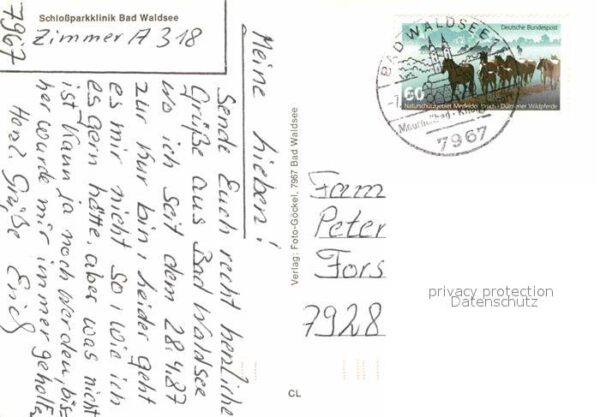 Schloßparkklinik Bad Waldsee
7967
Zimmer A 318
Meine Lieben!
Sende Euch recht herzliche
Grüße aus Bad Waldsee
wo ich seit dem 28.4.87
zur Kur bin, leider geht
es mir nicht so, wie ich
es gern hätte, aber was nicht
ist kann ja noch werden, bis
her wurde mir immer geholfen
Herzl. Grüße Erich
Verlag: Foto-Göckel, 7967 Bad Waldsee
CL
Deutsche Bundespost
60
Naturschutzgebiet Merfelder Bruch · Dülmener Wildpferde
BAD WALDSEE
Moorheilbad
7967
Fam
Peter
Fors
7928
privacy protection
Datenschutz